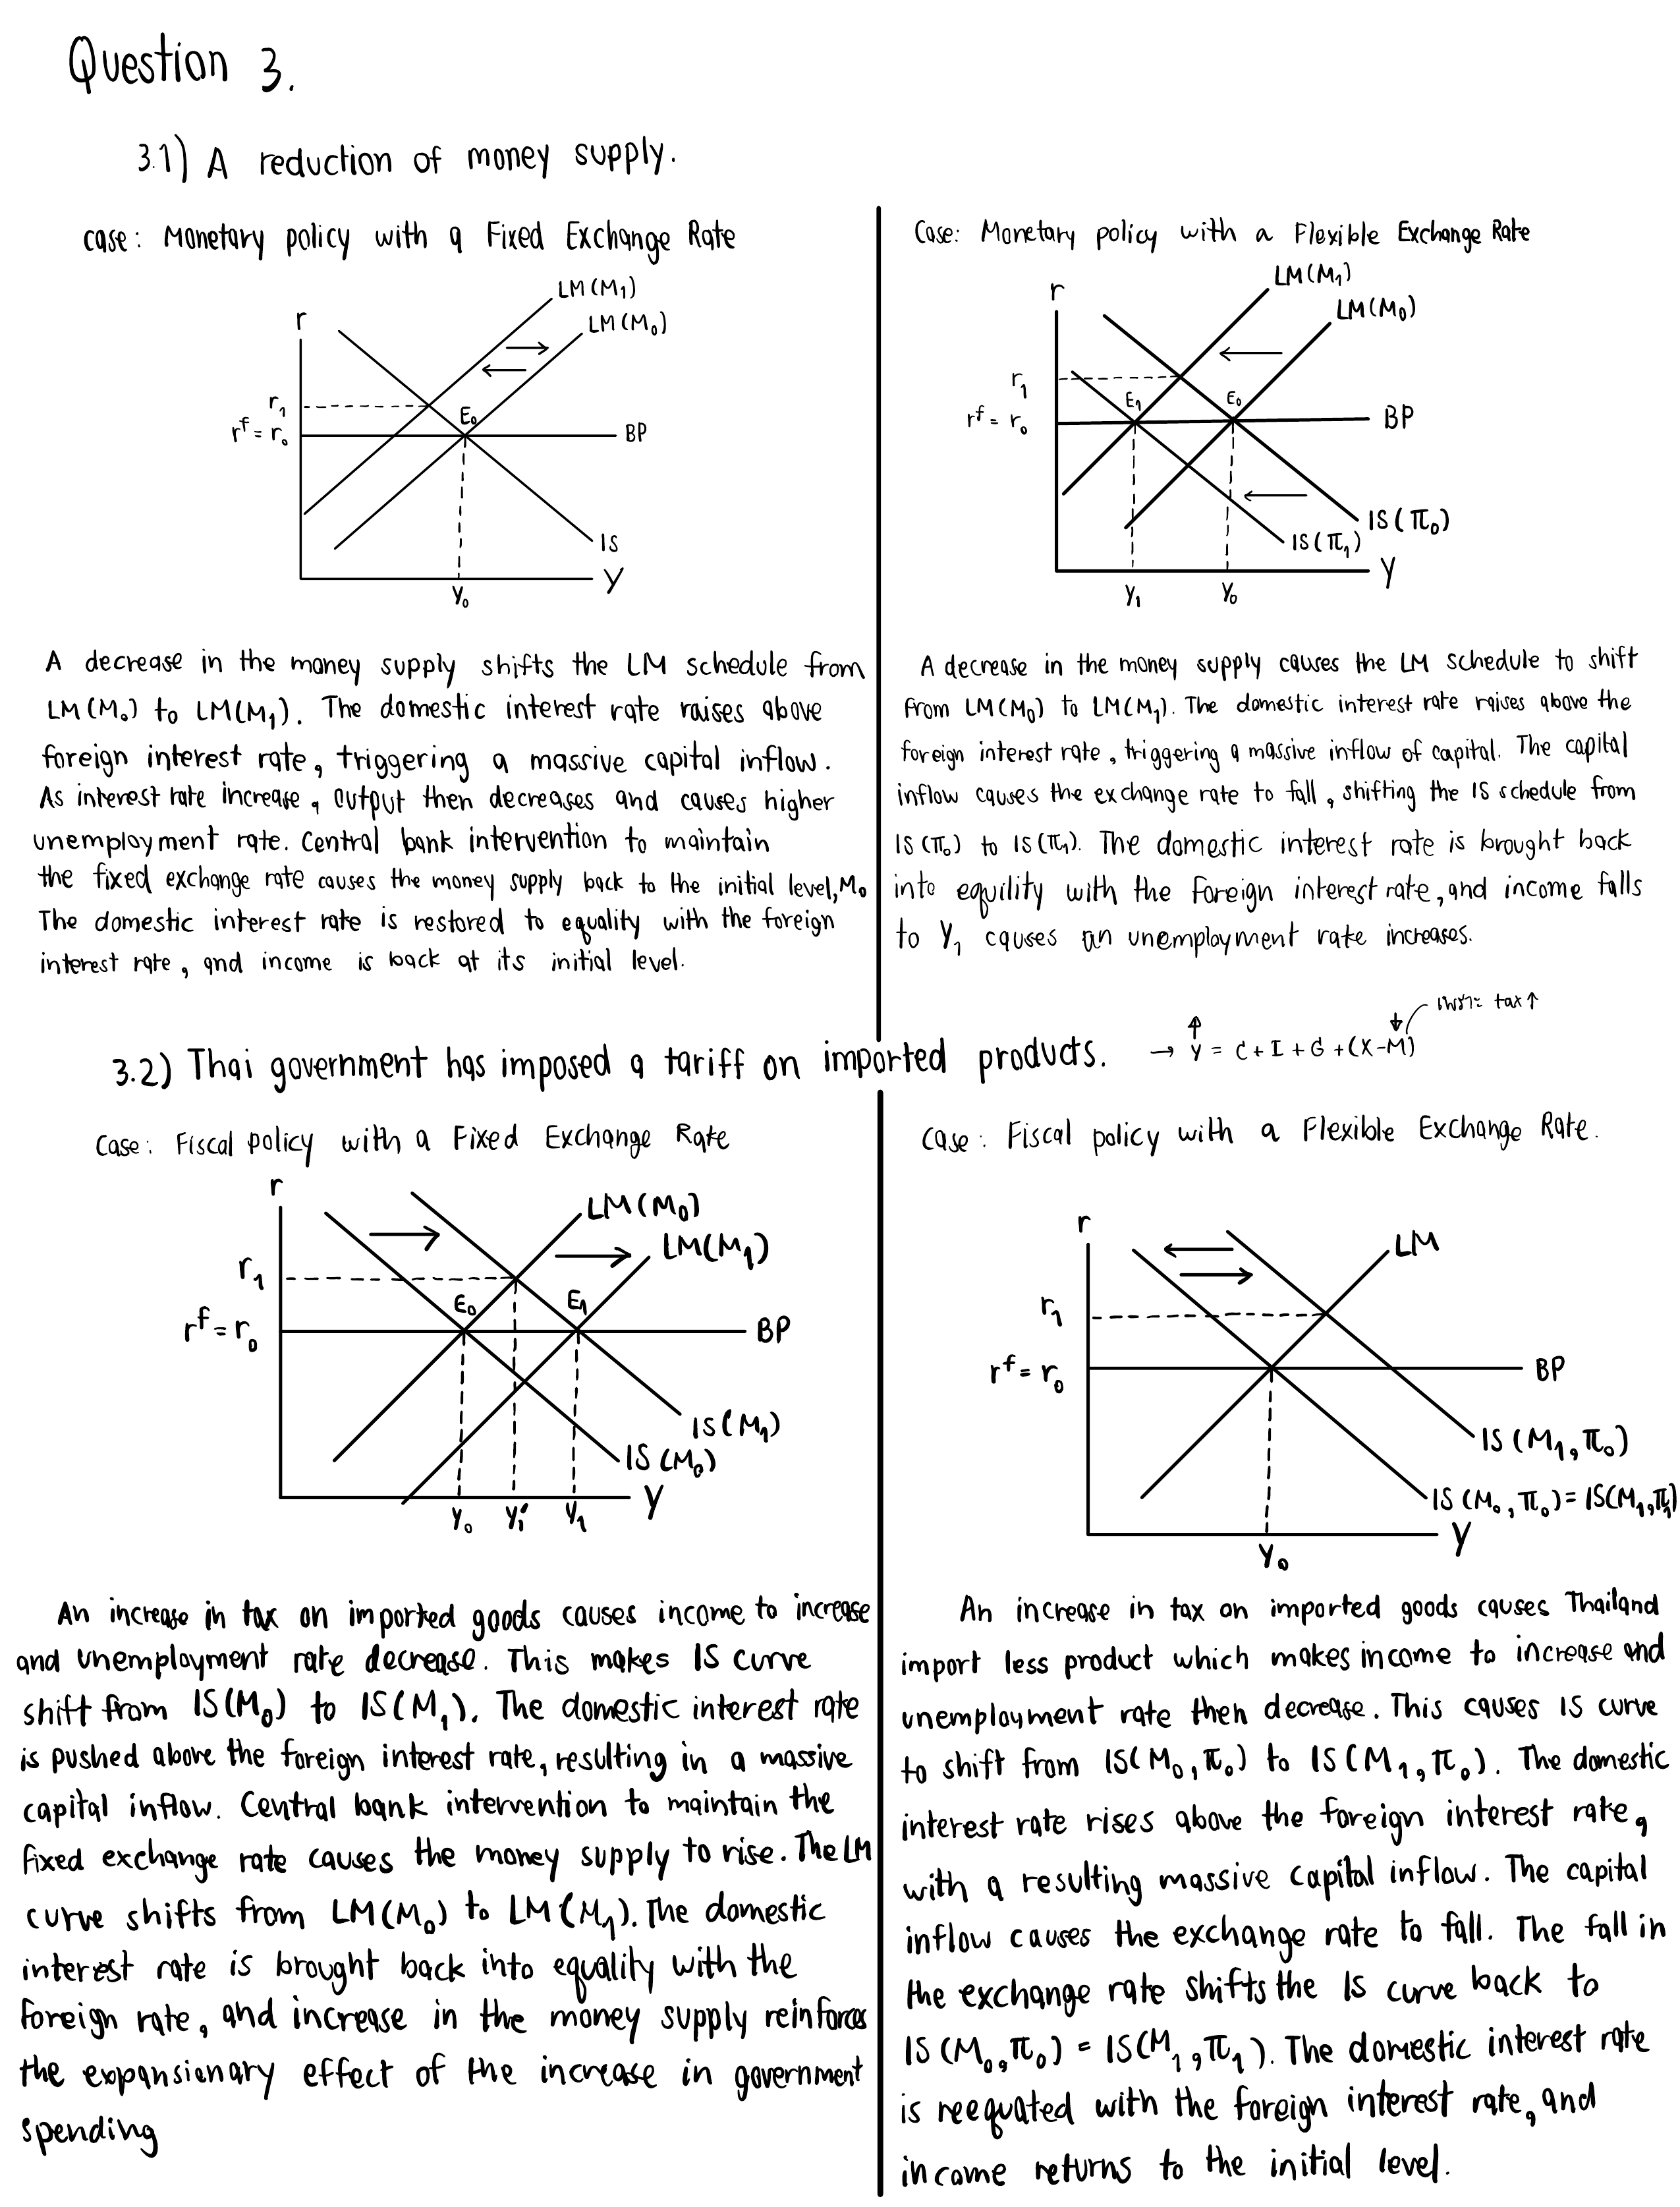 Question 3.
3.1) A reduction of money supply.
case: Monetary policy with a Fixed Exchange Rate
LM(M₁)
LM(M₀)
r
r₁
E₀
rᶠ = r₀
BP
IS
Y
Y₀
A decrease in the money supply shifts the LM schedule from
LM(M₀) to LM(M₁). The domestic interest rate raises above
foreign interest rate, triggering a massive capital inflow.
As interest rate increase, output then decreases and causes higher
unemployment rate. Central bank intervention to maintain
the fixed exchange rate causes the money supply back to the initial level, M₀
The domestic interest rate is restored to equality with the foreign
interest rate, and income is back at its initial level.
Case: Monetary policy with a Flexible Exchange Rate
LM(M₁)
r
LM(M₀)
r₁
E₁
E₀
rᶠ = r₀
BP
IS(π₀)
IS(π₁)
Y
Y₁
Y₀
A decrease in the money supply causes the LM schedule to shift
from LM(M₀) to LM(M₁). The domestic interest rate raises above the
foreign interest rate, triggering a massive inflow of capital. The capital
inflow causes the exchange rate to fall, shifting the IS schedule from
IS(π₀) to IS(π₁). The domestic interest rate is brought back
into equility with the foreign interest rate, and income falls
to Y₁ causes an unemployment rate increases.
3.2) Thai government has imposed a tariff on imported products. → Y↑ = C + I + G + (X-M↓)
เพราะ tax ↑
Case: Fiscal policy with a Fixed Exchange Rate
r
LM(M₀)
LM(M₁)
r₁
E₀
E₁
rᶠ = r₀
BP
IS(M₁)
IS(M₀)
Y
Y₀
Y₁'
Y₁
An increase in tax on imported goods causes income to increase
and unemployment rate decrease. This makes IS curve
shift from IS(M₀) to IS(M₁). The domestic interest rate
is pushed above the foreign interest rate, resulting in a massive
capital inflow. Central bank intervention to maintain the
fixed exchange rate causes the money supply to rise. The LM
curve shifts from LM(M₀) to LM(M₁). The domestic
interest rate is brought back into equality with the
foreign rate, and increase in the money supply reinforces
the expansionary effect of the increase in government
spending
Case: Fiscal policy with a Flexible Exchange Rate.
r
LM
r₁
rᶠ = r₀
BP
IS(M₁, π₀)
IS(M₀, π₀) = IS(M₁, π₁)
Y
Y₀
An increase in tax on imported goods causes Thailand
import less product which makes income to increase and
unemployment rate then decrease. This causes IS curve
to shift from IS(M₀, π₀) to IS(M₁, π₀). The domestic
interest rate rises above the foreign interest rate,
with a resulting massive capital inflow. The capital
inflow causes the exchange rate to fall. The fall in
the exchange rate shifts the IS curve back to
IS(M₀, π₀) = IS(M₁, π₁). The domestic interest rate
is reequated with the foreign interest rate, and
income returns to the initial level.